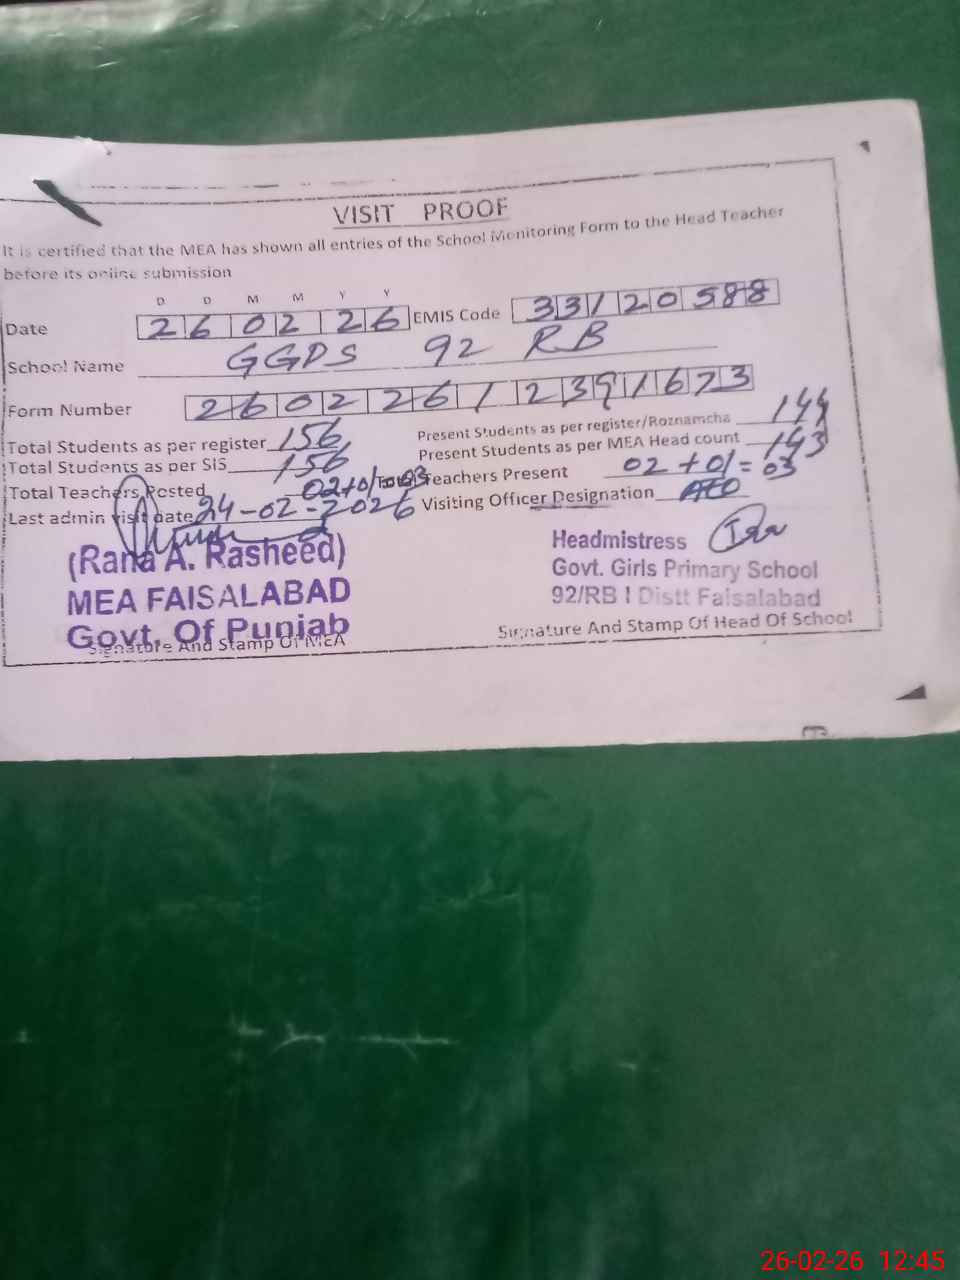 VISIT PROOF
It is certified that the MEA has shown all entries of the School Monitoring Form to the Head Teacher
before its online submission
D D M M Y Y
Date 26 02 26 EMIS Code 33120588
School Name GGPS 92 RB
Form Number 26022612391673
Total Students as per register 156 Present Students as per register/Roznamcha 144
Total Students as per SIS 156 Present Students as per MEA Head count 143
Total Teachers Posted 02+01=03 Teachers Present 02+01=03
Last admin visit date 24-02-2026 Visiting Officer Designation AEO
(Rana A. Rasheed) Headmistress
MEA FAISALABAD Govt. Girls Primary School
Govt. Of Punjab 92/RB I Distt Faisalabad
Signature And Stamp Of MEA Signature And Stamp Of Head Of School
26-02-26 12:45